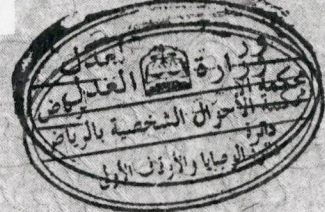 وزارة العدل
محكمة الأحوال الشخصية بالرياض
دائرة
الوصايا والأوقاف الأولى